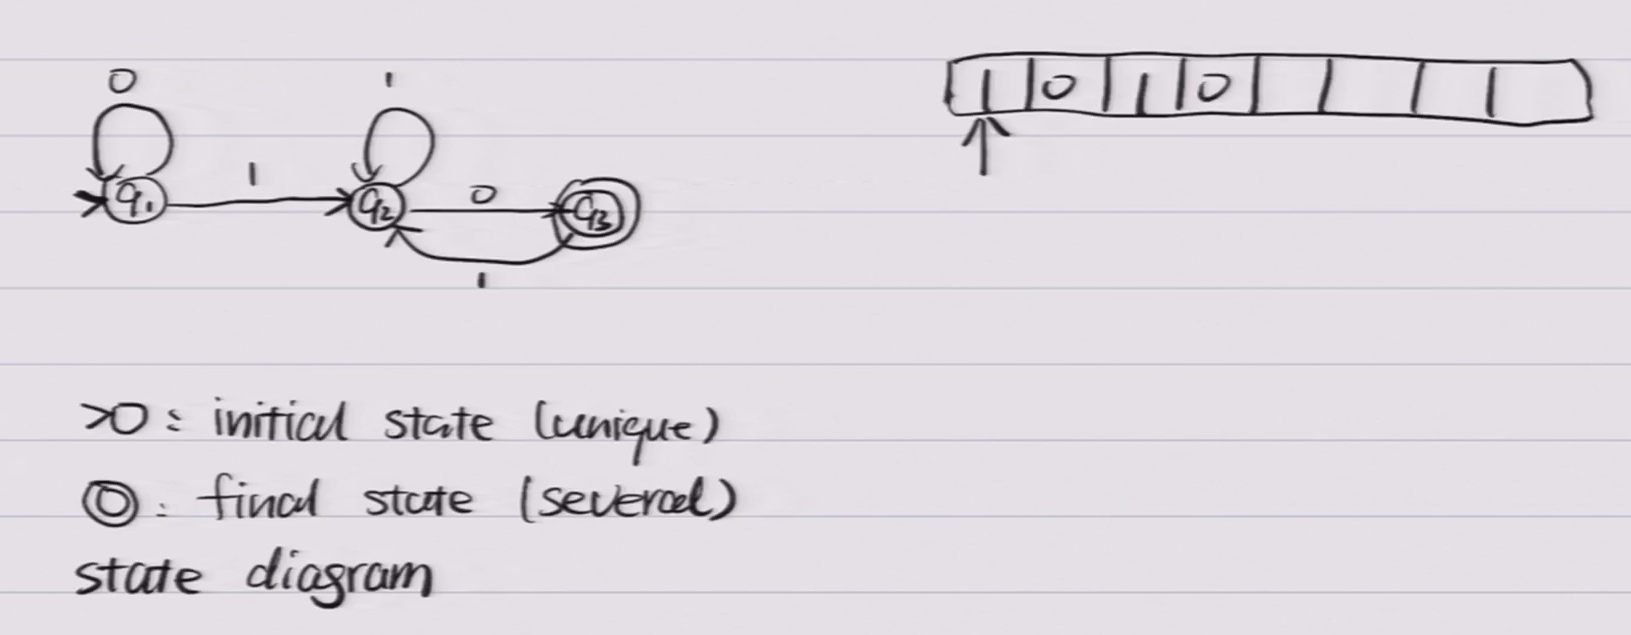 0 1
1 0 1 0
1 0
q1 q2 q3
1
>O: initial state (unique)
◎: final state (several)
state diagram